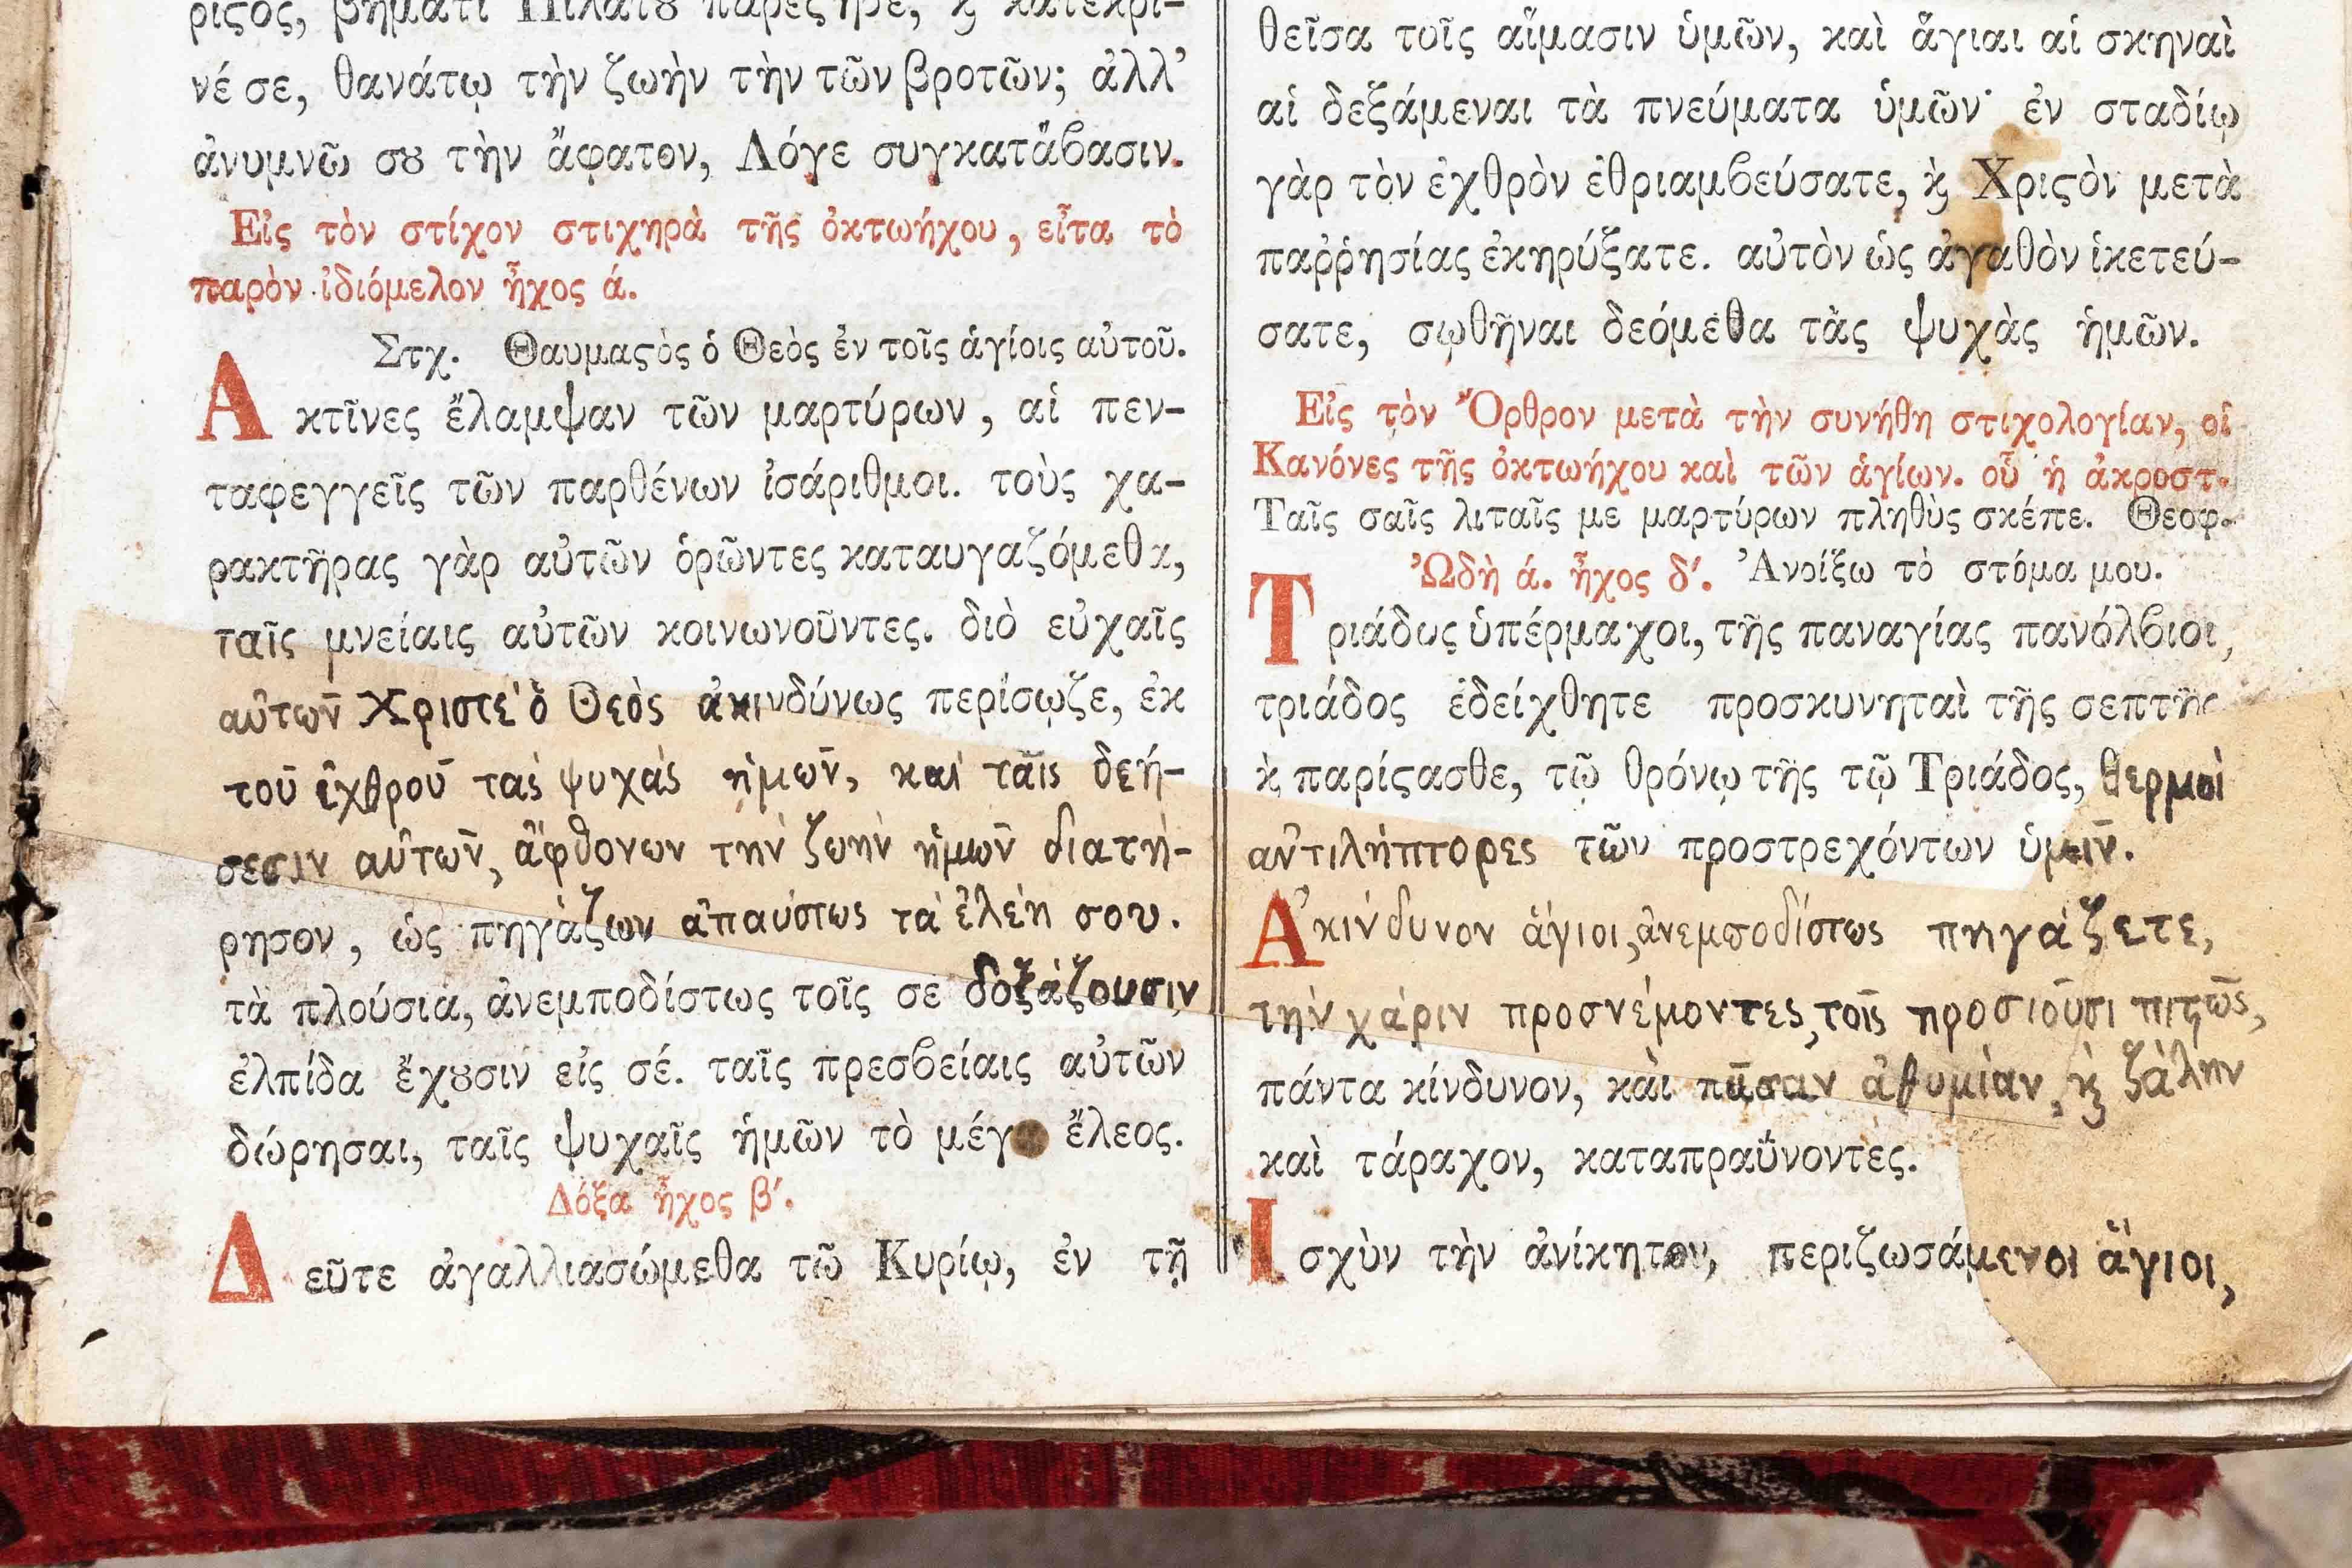 ριϛος, βήματι Πιλάτȣ παρέϛηϛε, ϗ κατεκρί-
νέ σε, θανάτῳ τὴν ζωὴν τὴν τῶν βροτῶν; ἀλλ’
ἀνυμνῶ σȣ τὴν ἄφατον, Λόγε συγκατάϐασιν.
Εἰς τὸν στίχον στιχηρὰ τῆς ὀκτωήχου, εἶτα τὸ
παρὸν ἰδιόμελον ἦχος ά.
Στχ. Θαυμαϛὸς ὁ Θεὸς ἐν τοῖς ἁγίοις αὐτοῦ.
Ακτῖνες ἔλαμψαν τῶν μαρτύρων, αἱ πεν-
ταφεγγεῖς τῶν παρθένων ἰσάριθμοι. τοὺς χα-
ρακτῆρας γὰρ αὐτῶν ὁρῶντες καταυγαζόμεθα,
ταῖς μνείαις αὐτῶν κοινωνοῦντες. διὸ εὐχαῖς
αὐτῶν Χριστὲ ὁ Θεὸς ἀκινδύνως περίσωζε, ἐκ
τοῦ ἐχθροῦ τὰς ψυχὰς ἡμῶν, καὶ ταῖς δεή-
σεσιν αὐτῶν, ἄφθονων τὴν ζωὴν ἡμῶν διατή-
ρησον, ὡς πηγάζων ἀπαύστως τὰ ἐλέη σου.
τὰ πλούσια, ἀνεμποδίστως τοῖς σε δοξάζουσιν
ἐλπίδα ἔχȣσιν εἰς σέ. ταῖς πρεσϐείαις αὐτῶν
δώρησαι, ταῖς ψυχαῖς ἡμῶν τὸ μέγ ἔλεος.
Δόξα ἦχος β΄.
Δεῦτε ἀγαλλιασώμεθα τῷ Κυρίῳ, ἐν τῇ
θεῖσα τοῖς αἵμασιν ὑμῶν, καὶ ἅγιαι αἱ σκηναὶ
αἱ δεξάμεναι τὰ πνεύματα ὑμῶν· ἐν σταδίῳ
γὰρ τὸν ἐχθρὸν ἐθριαμϐεύσατε, ϗ Χριϛὸν μετὰ
παῤῥησίας ἐκηρύξατε. αὐτὸν ὡς ἀγαθὸν ἱκετεύ-
σατε, σωθῆναι δεόμεθα τὰς ψυχὰς ἡμῶν.
Εἰς τὸν Ὄρθρον μετὰ τὴν συνήθη στιχολογίαν, οἱ
Κανόνες τῆς ὀκτωήχου καὶ τῶν ἁγίων. οὗ ἡ ἀκροστ.
Ταῖς σαῖς λιταῖς με μαρτύρων πληθὺς σκέπε. Θεοφ.
ᾨδὴ ά. ἦχος δ΄. Ἀνοίξω τὸ στόμα μου.
Τριάδος ὑπέρμαχοι, τῆς παναγίας πανόλϐιοι,
τριάδος ἐδείχθητε προσκυνηταὶ τῆς σεπτῆς
ϗ παρίϛασθε, τῷ θρόνῳ τῆς τῷ Τριάδος, θερμοὶ
ἀντιλήπτορες τῶν προστρεχόντων ὑμῖν.
Ἀκίνδυνον ἅγιοι, ἀνεμποδίστως πηγάζετε,
τὴν χάριν προσνέμοντες, τοῖς προσιοῦσι πιϛῶς,
πάντα κίνδυνον, καὶ πᾶσαν ἀθυμίαν, ϗ ζάλην
καὶ τάραχον, καταπραΰνοντες.
Ισχὺν τὴν ἀνίκητον, περιζωσάμενοι ἅγιοι,